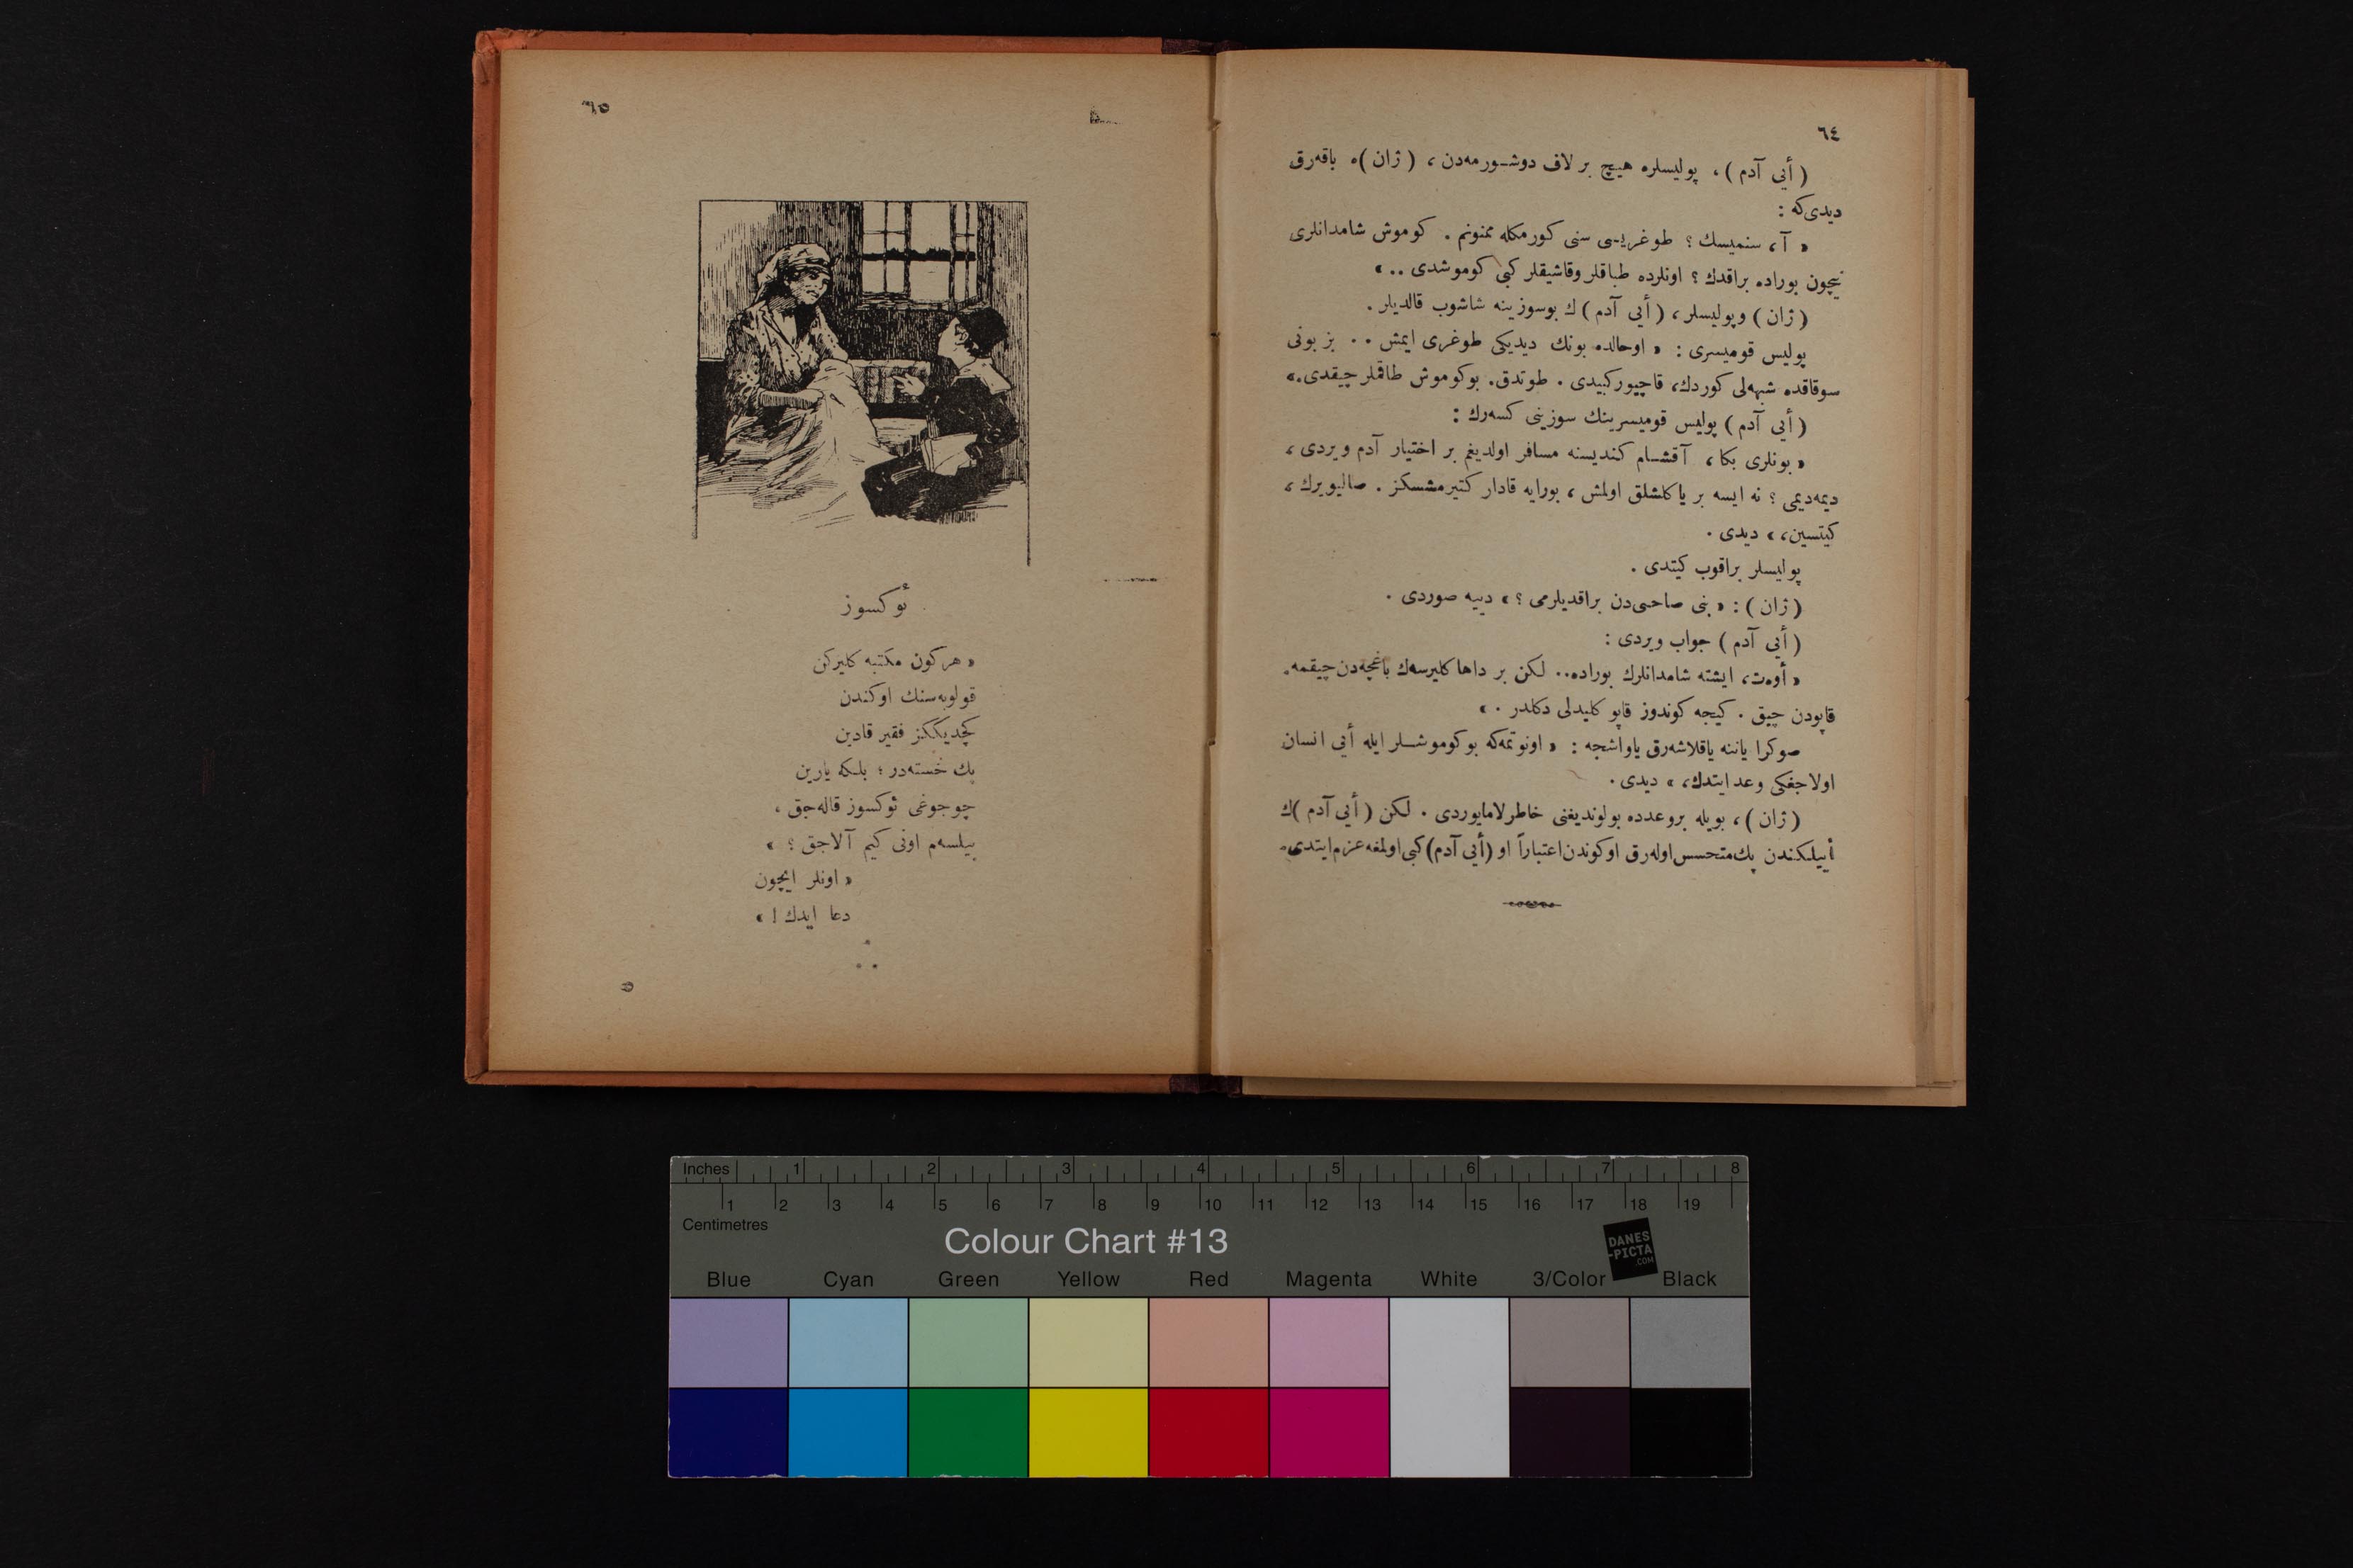 ٦٤
( أیی آدم ) ، پولیسلره هیچ بر لاف دوشورمه‌دن ، ( ژان )ه باقه‌رق
دیدی‌که :
« آ ، سنمیسك ؟ طوغریسی سنی کورمکله ممنونم . کوموش شامدانلری
نیچون بوراده براقدك ؟ اونلرده طباقلر وقاشیقلر کبی کوموشدی .. »
( ژان ) وپولیسلر ، ( أیی آدم )ك بوسوزینه شاشوب قالدیلر .
پولیس قومیسری : « اوحالده بونك دیدیکی طوغری ایمش .. بز بونی
سوقاقده شبهه‌لی کوردك، قاچیور کبیدی . طوتدق. بوکوموش طاقملر چیقدی.»
( أیی آدم ) پولیس قومیسرینك سوزینی کسه‌رك :
« بونلری بکا ، آقشام کندیسنه مسافر اولدیغم بر اختیار آدم ویردی ،
دیمه‌دیمی ؟ نه ایسه بر یا کلشلق اولمش ، بورایه قادار کتیرمشسکز . صالیویرك ،
کیتسین، » دیدی .
پولیسلر براقوب کیتدی .
( ژان ) : « بنی صاحی‌دن براقدیلرمی ؟ » دییه صوردی .
( أیی آدم ) جواب ویردی :
« أوه‌ت، ایشته شامدانلرك بوراده.. لکن بر داها کلیرسه‌ك باغچه‌دن چیقمه.
قاپودن چیق . کیجه کوندوز قاپو کلیدلی دکلدر . »
صوکرا یاننه یاقلاشه‌رق یاواشجه : « اونوتمه‌که بو کوموشلر ایله أیی انسان
اولاجغکی وعد ایتدك، » دیدی .
( ژان ) ، بویله بروعدده بولوندیغنی خاطرلامایوردی . لکن ( أیی آدم )ك
أییلکندن پك متحسس اوله‌رق اوکوندن اعتباراً او (أیی آدم) کبی اولمغه عزم ایتدی.
٦٥
ئوکسوز
« هرکون مکتبه کلیرکن
قولوبه‌سنك اوکندن
کچدیککز فقیر قادین
پك خسته‌در ؛ بلکه یارین
چوجوغی ئوکسوز قاله‌جق ،
بیلسه‌م اونی کیم آلاجق ؟ »
« اونلر ایچون
دعا ایدك ! »
٥
Inches 1 2 3 4 5 6 7 8
1 2 3 4 5 6 7 8 9 10 11 12 13 14 15 16 17 18 19
Centimetres
Colour Chart #13
DANES
-PICTA
.COM
Blue Cyan Green Yellow Red Magenta White 3/Color Black